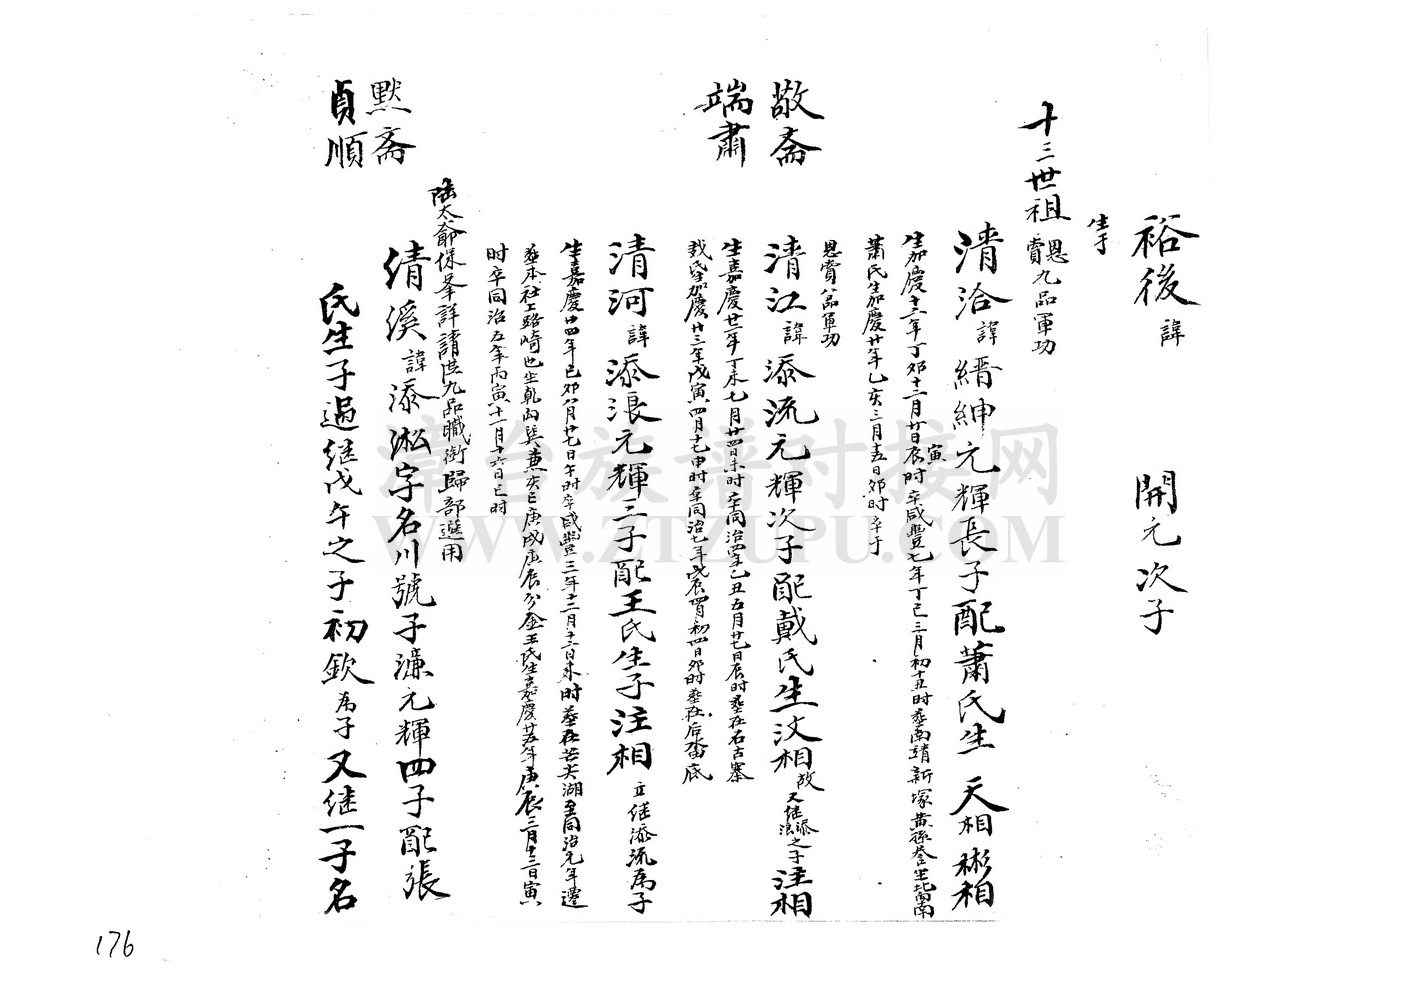 裕後 諱 開元次子
生于
十三世祖 恩賞九品軍功
清洽 諱 縉紳元輝長子配蕭氏生 天相 彬相
生加慶十二年丁卯十二月廿日辰寅时卒咸豐七年丁巳三月初十丑时葬南靖新塚黄 坐北南
蕭氏生加慶廿年乙亥三月 日卯时卒于
敬斋
端肅
恩賞八品軍功
清江 諱 添流元輝次子配戴氏生汶相 故又继添浪之子注相
生嘉慶廿二年丁未七月廿四日未时卒同治四年乙丑五月廿七日辰时葬在石古寨
戴氏生加慶廿三年戊寅四月十七申时卒同治七年戊辰四月初四日卯时葬在后畨底
清河 諱 添浪元輝三子配王氏生子注相 立继添流為子
生嘉慶廿四年己卯八月廿七日午时卒咸豐三年十二月十二日未时葬在苦夫湖至同治元年遷
葬本社上路崎也坐乾向巽兼亥巳庚戌庚辰分金王氏生嘉慶廿五年庚辰三月十二日寅
时卒同治五年丙寅十一月十六日巳时
默斋
貞順
陆太爺保峯詳請 九品職銜歸部選用
清溪 諱 添淞字名川號子濂元輝四子配張
氏生子過继戊午之子初欽為子又继一子名
176
漳台族谱对接网
WWW.ZTZUPU.COM